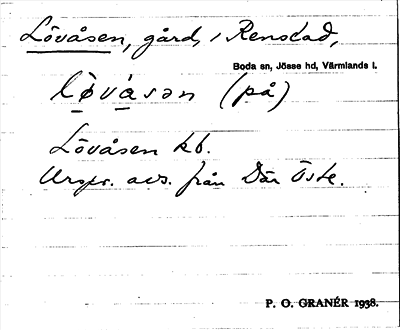 Lövåsen, gård, i Renstad,
Boda sn, Jösse hd, Värmlands l.
lø̀vàsən (på)
Lövåsen kb.
Urspr. avs. från Där Öste.
P. O. GRANÉR 1938.